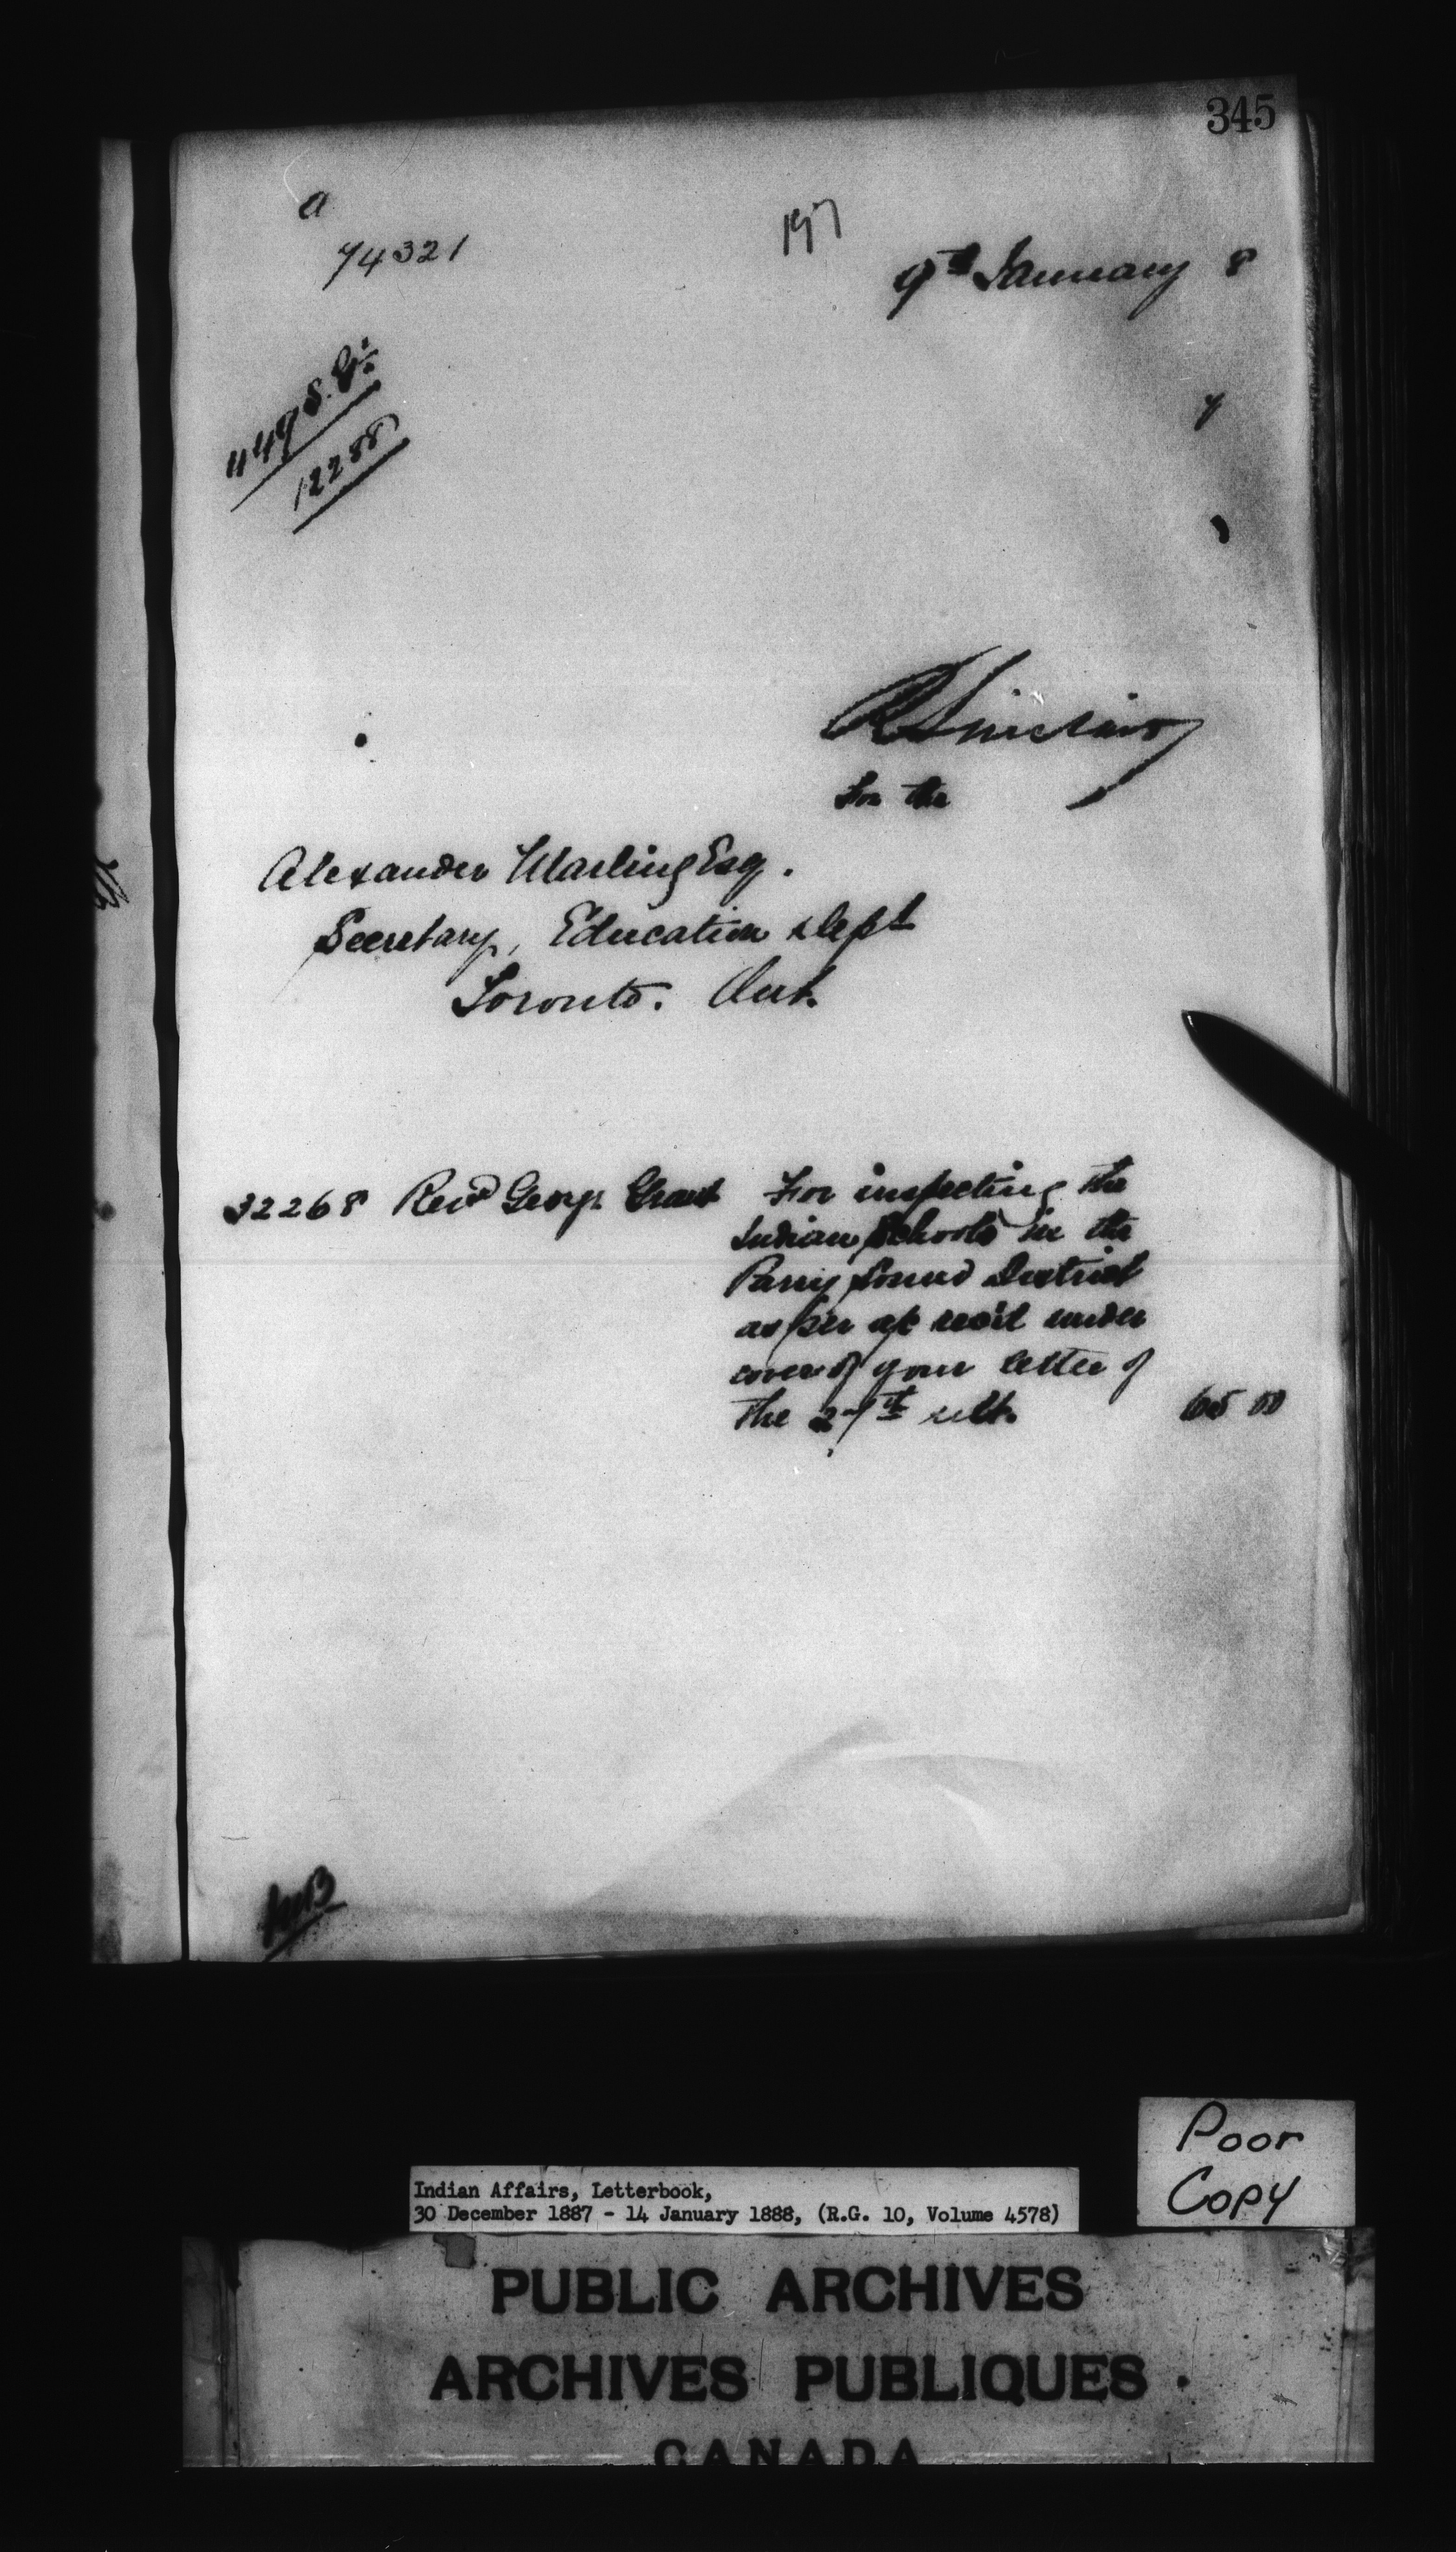 345
a
74321
197
9th January 8
449 S. G.
12288
y
R Sinclair
For the
Alexander Marling Esq.
Secretary, Education Dept
Toronto. Ont.
32268 Revd George Grant For inspecting the
Indian Schools in the
Parry Sound District
as per a/c rec'd under
cover of your letter of
the 27th ult. 65 00
Poor
Copy
Indian Affairs, Letterbook,
30 December 1887 - 14 January 1888, (R.G. 10, Volume 4578)
PUBLIC ARCHIVES
ARCHIVES PUBLIQUES
CANADA